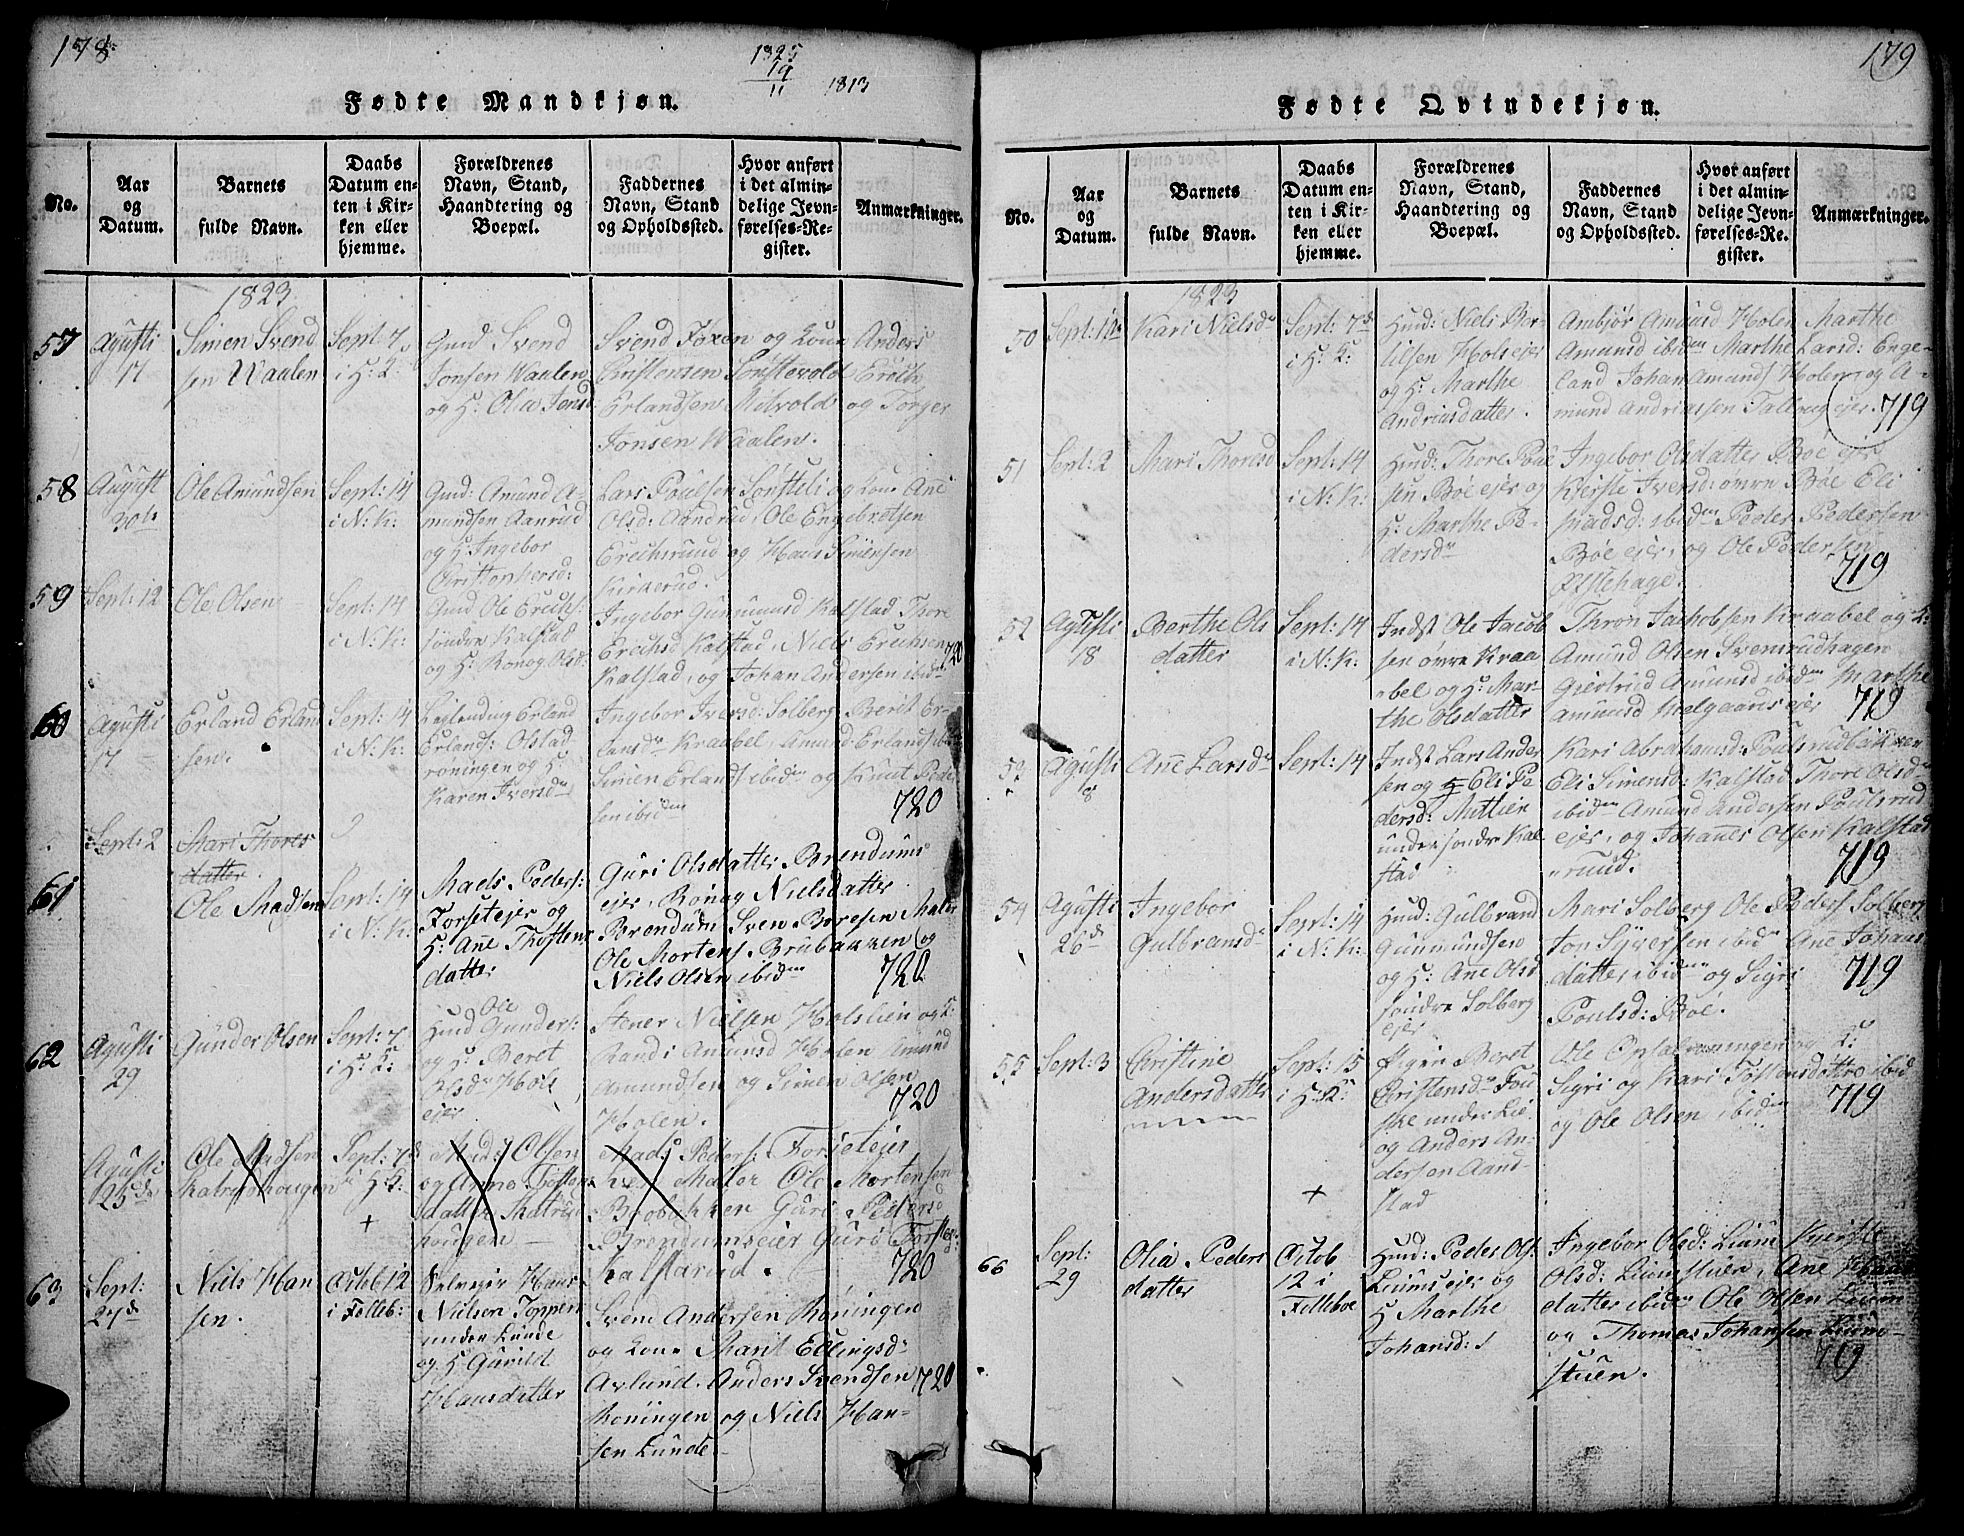 178.
1825
19
11
1813
Fødte Mandkjøn.
No.
Aar
og
Datum.
Barnets
fulde Navn.
Daabs
Datum en-
ten i Kir-
ken eller
hjemme.
Forældrenes
Navn, Stand,
Haandtering og
Boepæl.
Faddernes
Navn, Stand
og Opholdssted.
Hvor anført
i det almin-
delige Jevn-
førelses-Re-
gister.
Anmærkninger.
1823
57
Agusti
17
Simen Svend
sen Waalen
Sept: 7
i H: K:
Gmd Svend
Jonsen Waalen
og H: Olia Jensd
Svend Joxen og Kone Anders
Christensen Sønstevold Erich
Erlandsen Melvold og Torger
Jonsen Waalen.
58
August
30te
Ole Amundsen
Sept: 14
i N: K:
Gmd: Amund A-
mundsen Aanrud
og H: Ingebor
Christophersd:
Lars Poulsen Sønsteli og Kone Ane
Olsd: Aandrud, Ole Engebretsen
Erichsruud og Hans Simensen
Kirkerud.
59
Sept: 12
Ole Olsen
Sept: 14
i N: K:
Gmd Ole Erichs:
søndre Kalstad
og H: Ronog Olsd:
Ingebor Gunmunsd Kalstad Thore
Erichsd Kalstad, Niels Erichsen
Kalstad, og Johan Andersen ibid
720
60
Agusti
17
Erland Erland
sen.
Sept: 14
i N: K:
Leglending Erland
Erlands: Olstad
røningen og H:
Karen Iversd
Ingebor Iversd: Solberg Berit Er-
landsd Kraabel, Amund Erlands ibid
Simen Erlands ibid og Knut Peder
sen ibid
720
Sept: 2
Mari Thores
datter.
61
Ole Madsen
Sept: 14
i N: K:
Mads Peders:
Forsetejer og
H: Ane Thostens
datter
Guri Olsdatter Brendums
ejer, Rønog Nielsdatter
Brendum Sven Boresen Maler
Ole Mortens Brubakken og
Niels Olsen ibid
720
62
Agusti
29
Gunder Olsen
Sept: 7
i H: K:
Ole
Hmd Gunders:
og H: Beret
Olsd Hols
ejer
Stener Nielsen Holslien og K:
Randi Amunsd Holen Amund
Amundsen og Simen Olsen
Holen.
720
Agusti
25de
Ole Madsen
Sept: 7d
i H: K:
+
Mads Olsen
og Anne Tosten
datter
hougen
Mads Peders: Forseteier
Maler Ole Mortensen
Brobakken Guri Pedersd
Brendumseier Guri Torsten
Kalstarud.
720
63
Sept:
27d
Niels Han
sen.
Octob 12
i Folleb:
Selveier Hans
Nielsen Toppen
under Lunde
og H Gunild
Hansdatter
Svend Andersen Roningen
og Kone Marit Ellingsd:
Avlund. Anders Svendsen
Roningen og Niels Han-
sen Lunde
720
179
Fødte Qvindekjøn.
No.
Aar
og
Datum.
Barnets
fulde Navn.
Daabs
Datum en-
ten i Kir-
ken eller
hjemme.
Forældrenes
Navn, Stand,
Haandtering og
Boepæl.
Faddernes
Navn, Stand
og Opholdssted.
Hvor anført
i det almin-
delige Jevn-
førelses-Re-
gister.
Anmærkninger.
1823
50
Sept: 1te
Kari Nielsd
Sept: 7d
i H: K:
Hmd: Niels Ber-
tilsen Holsejer
og H: Marthe
Andriasdatter.
Ambjør Amund Holen Marthe
Amunsd ibid Marthe Larsd: Enge-
land Johan Amunds Holen, og A-
mund Andriassen Tallaug ejer.
719
51
Sept: 2
Mari Thoresd
Sept: 14
i N: K:
Hmd: Thore Poul
sen Bøe ejer og
H: Marthe Pe-
dersd
Ingebor Olsdatter Bøe ejer
Kjerste Iversd: øvre Bøe Eli
Madsd: ibid Peder Pedersen
Bøe ejer, og Ole Pedersen
719
52
Agusti
18
Berthe Ols
datter
Sept: 14
i N: K:
Indst Ole Jacob
sen øvre Kraa
bel og H: Mar-
the Olsdatter
Thron Jachobsen Kraabel og K:
Amund Olsen Svensrudhagen
Giertrud Amunsd ibid Marthe
Amunsd Melgaards ejer
719
53
Agusti
8
Ane Larsd
Sept: 14
Indst Lars Ander
sen og H Eli Pe
dersd: Mitlien
under søndre Kal
stad
Kari Abrahamsd: Poulsrudbakken
Eli Simensd: Kalstad Thore Olsd
ibid Amund Andersen Poulsrud
ejer, og Johanes Olsen Kalstad
ruud.
719
54
Agusti
26d
Ingebor
Gulbransd
Sept: 14
i N: K:
Hmd: Gulbrand
Gunmundsen
og H: Ane Olsd
søndre Solberg
ejer
Mari Solberg Ole Peders Solberg
Jon Syversen ibid Ane Johans
datter ibid og Sigri
Poulsd: Bøe.
719
55
Sept: 3
Christine
Andersdatter
Sept: 15
i H: K:
+
Pigen Beret
Christensd Fou
ske under Lie
og Anders An-
dersen Aand-
stad
Ole Opsalroeningen og K:
Sigri og Kari Tostensdatter ibid
og Ole Olsen ibid
719
66
Sept:
29
Olia Peders
datter
Octob
12 i
Folleboe
Hmd: Peder Ols
Liumsejer og
H Marthe
Johansd:
Ingebor Olsd: Lium Kjerste
Olsd: Liumstuen, Ane Hans
datter ibid Ole Olsen Lium
og Thomas Johansen Lium-
stuen.
719